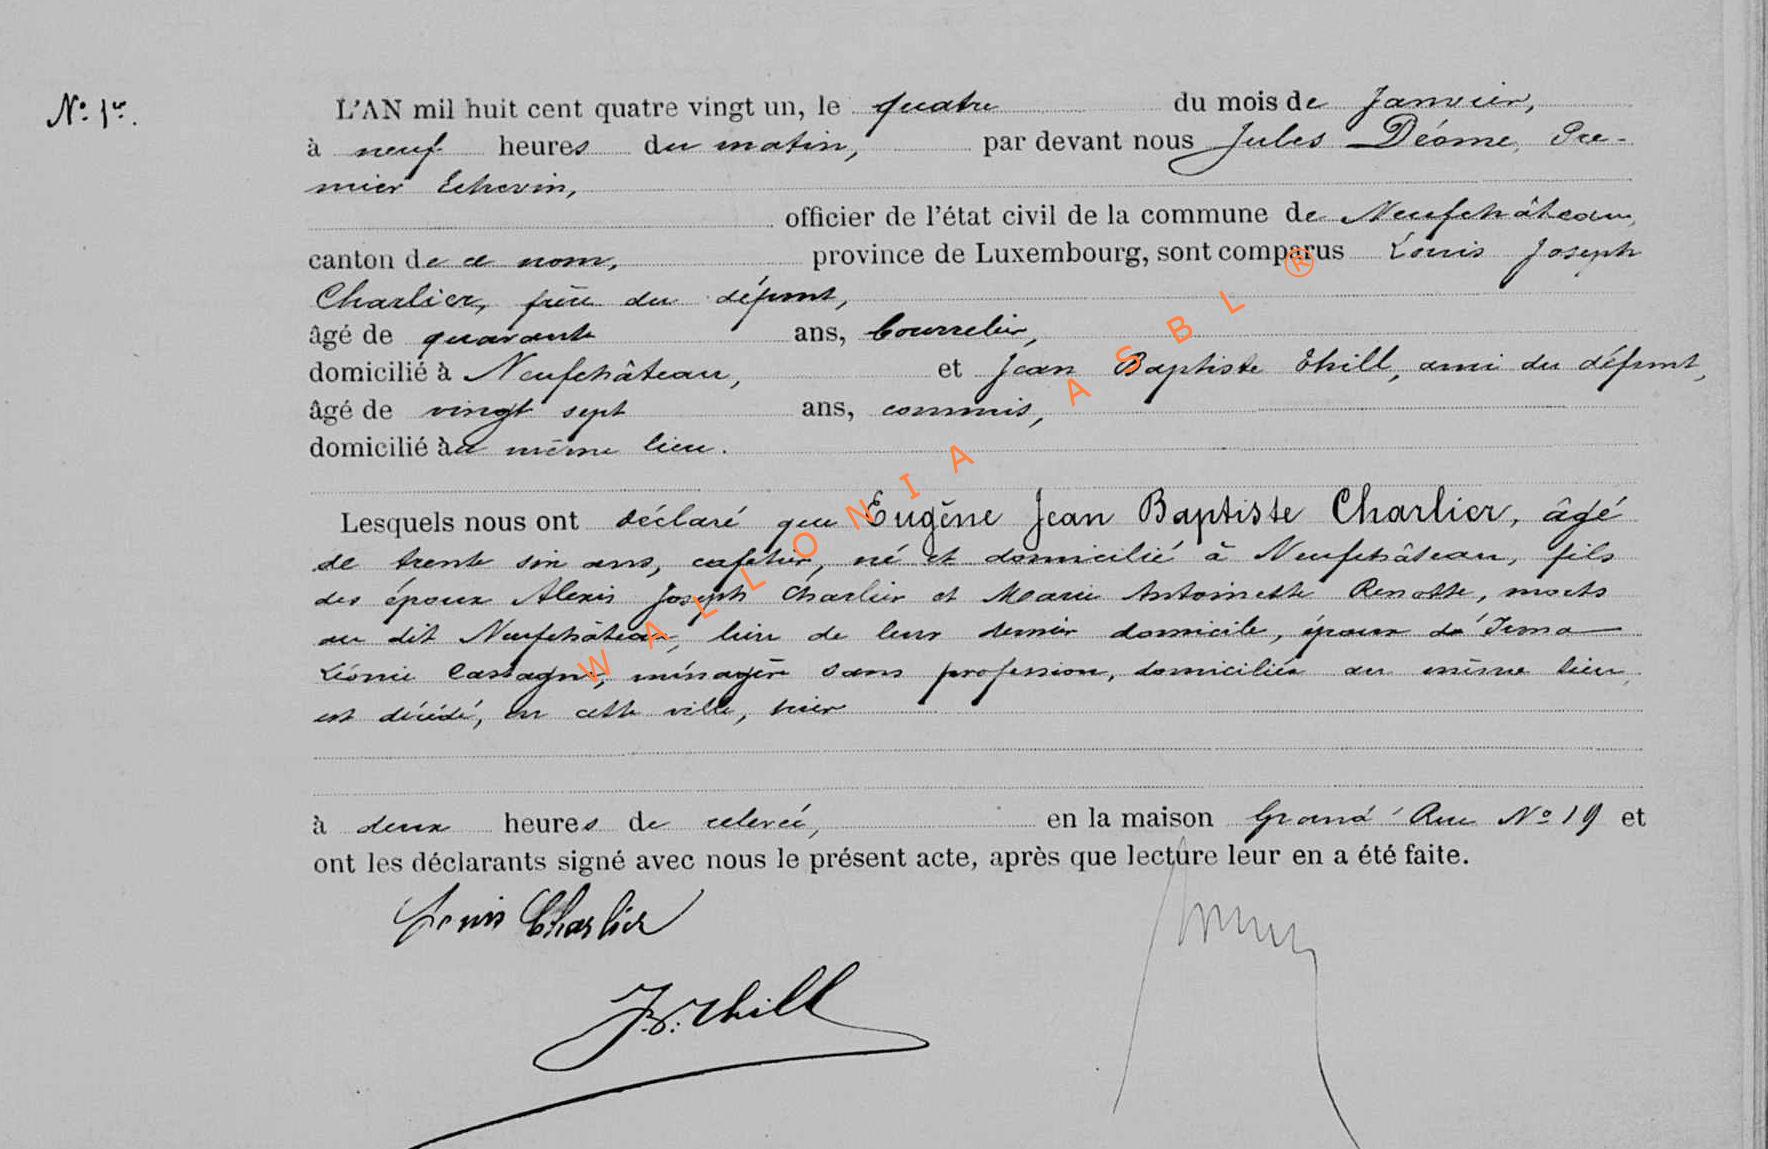 N.º 1er.
L'AN mil huit cent quatre vingt un, le quatre du mois de Janvier,
à neuf heures du matin, par devant nous Jules Déome, Pre-
mier Echevin,
officier de l'état civil de la commune de Neufchâteau,
canton de ce nom, province de Luxembourg, sont comparus Louis Joseph
Charlier, frère du défunt,
âgé de quarante ans, bourrelier,
domicilié à Neufchâteau, et Jean Baptiste Thill, ami du défunt,
âgé de vingt sept ans, commis,
domicilié au même lieu.
Lesquels nous ont déclaré que Eugène Jean Baptiste Charlier, âgé
de trente six ans, cafetier, né et domicilié à Neufchâteau, fils
des époux Alexis Joseph Charlier et Marie Antoinette Renotte, morts
au dit Neufchâteau, lieu de leur dernier domicile, époux de Irma
Léonie Castagne, ménagère sans profession, domiciliée au même lieu,
est décédé, en cette ville, hier
à deux heures de relevée, en la maison Grand'Rue Nº 19 et
ont les déclarants signé avec nous le présent acte, après que lecture leur en a été faite.
Louis Charlier
J.B. Thill
WALLONIA ASBL ®